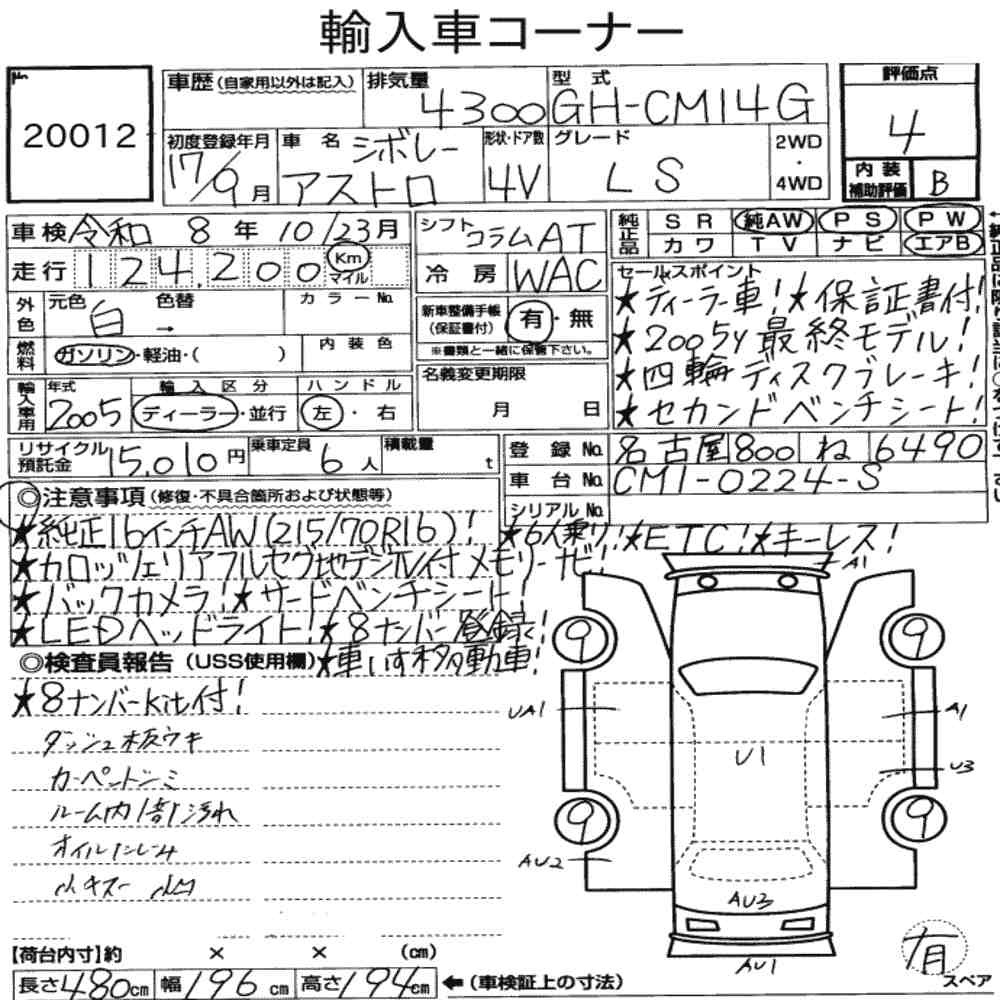 輸入車コーナー
No. 20012
車歴 (自家用以外は記入) 排気量 4300 型式 GH-CM14G 評価点 4
初度登録年月 17/9月 車名 シボレー アストロ 形状・ドア数 4V グレード LS 2WD・4WD 内装補助評価 B
車検 令和 8年 10/23月
走行 124,200 Km マイル
外色 元色 白 色替 → カラーNo.
燃料 ガソリン・軽油・( ) 内装色
輸入車用 年式 2005 輸入区分 ディーラー・並行 ハンドル 左・右
リサイクル預託金 15,010円 乗車定員 6人 積載量 t
シフト コラムAT
冷房 WAC
新車整備手帳 (保証書付) 有・無
※書類と一緒に保管下さい。
名義変更期限 月 日
純正品 SR 純AW PS PW
カワ TV ナビ エアB
セールスポイント
★ディーラー車!★保証書付!
★2005y最終モデル!
★四輪ディスクブレーキ!
★セカンドベンチシート!
登録No. 名古屋 800 ね 6490
車台No. CM1-0224-S
シリアルNo.
◎注意事項 (修復・不具合箇所および状態等)
★純正16インチAW(215/70R16)! ★6人乗り!★ETC!★キーレス!
★カロッツェリアフルセグ地デジ付メモリーナビ!
★バックカメラ!★サードベンチシート!
★LEDヘッドライト!★8ナンバー登録!
◎検査員報告 (USS使用欄) ★車いす移動車!
★8ナンバーKit付!
ダッシュ板ウキ
カーペットシミ
ルーム内1部汚れ
オイルにじみ
小キズ 小凹
A1
9 9
UA1 A1
U1 U3
9 9
AU2
AU3
AU1
有 スペア
【荷台内寸】約 × × (cm)
長さ480cm 幅196cm 高さ194cm ←(車検証上の寸法)